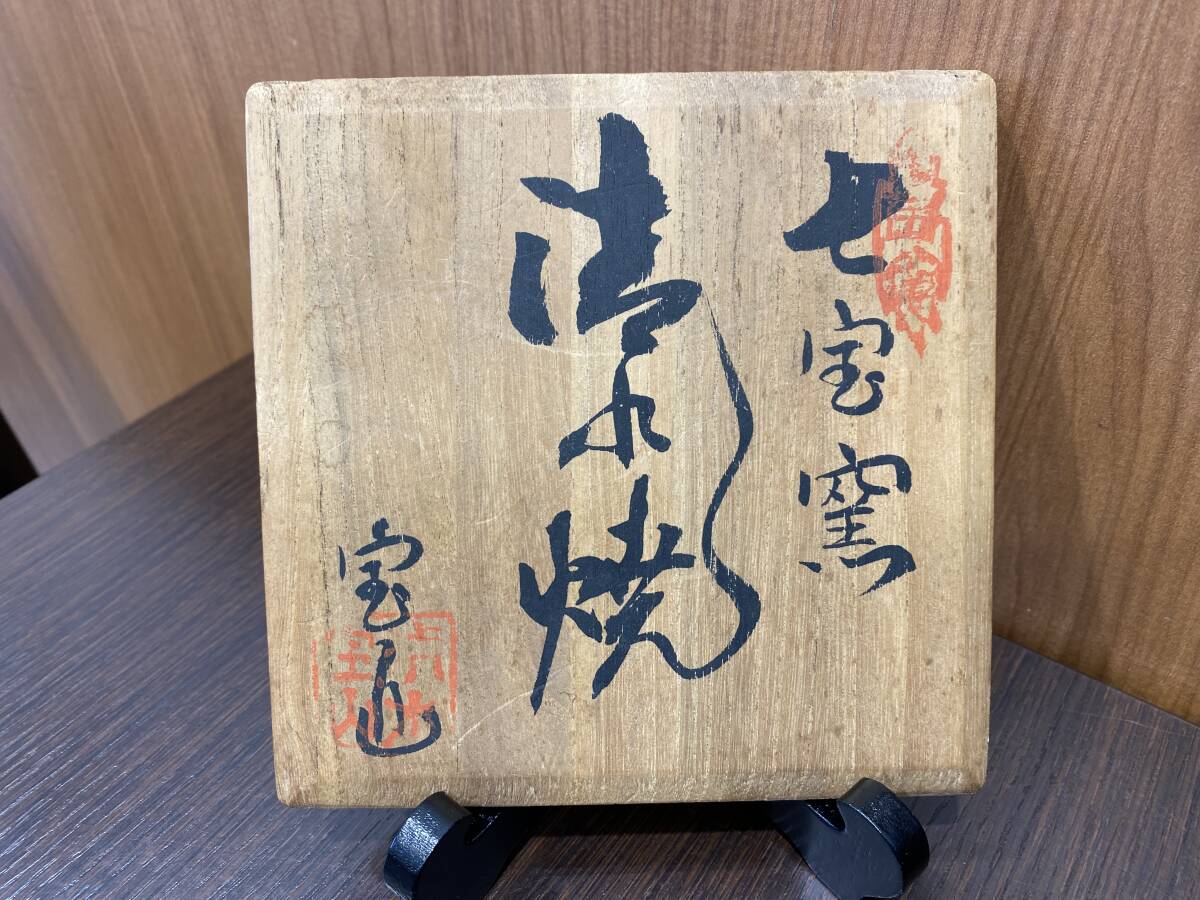 七宝窯
清水焼
宝山